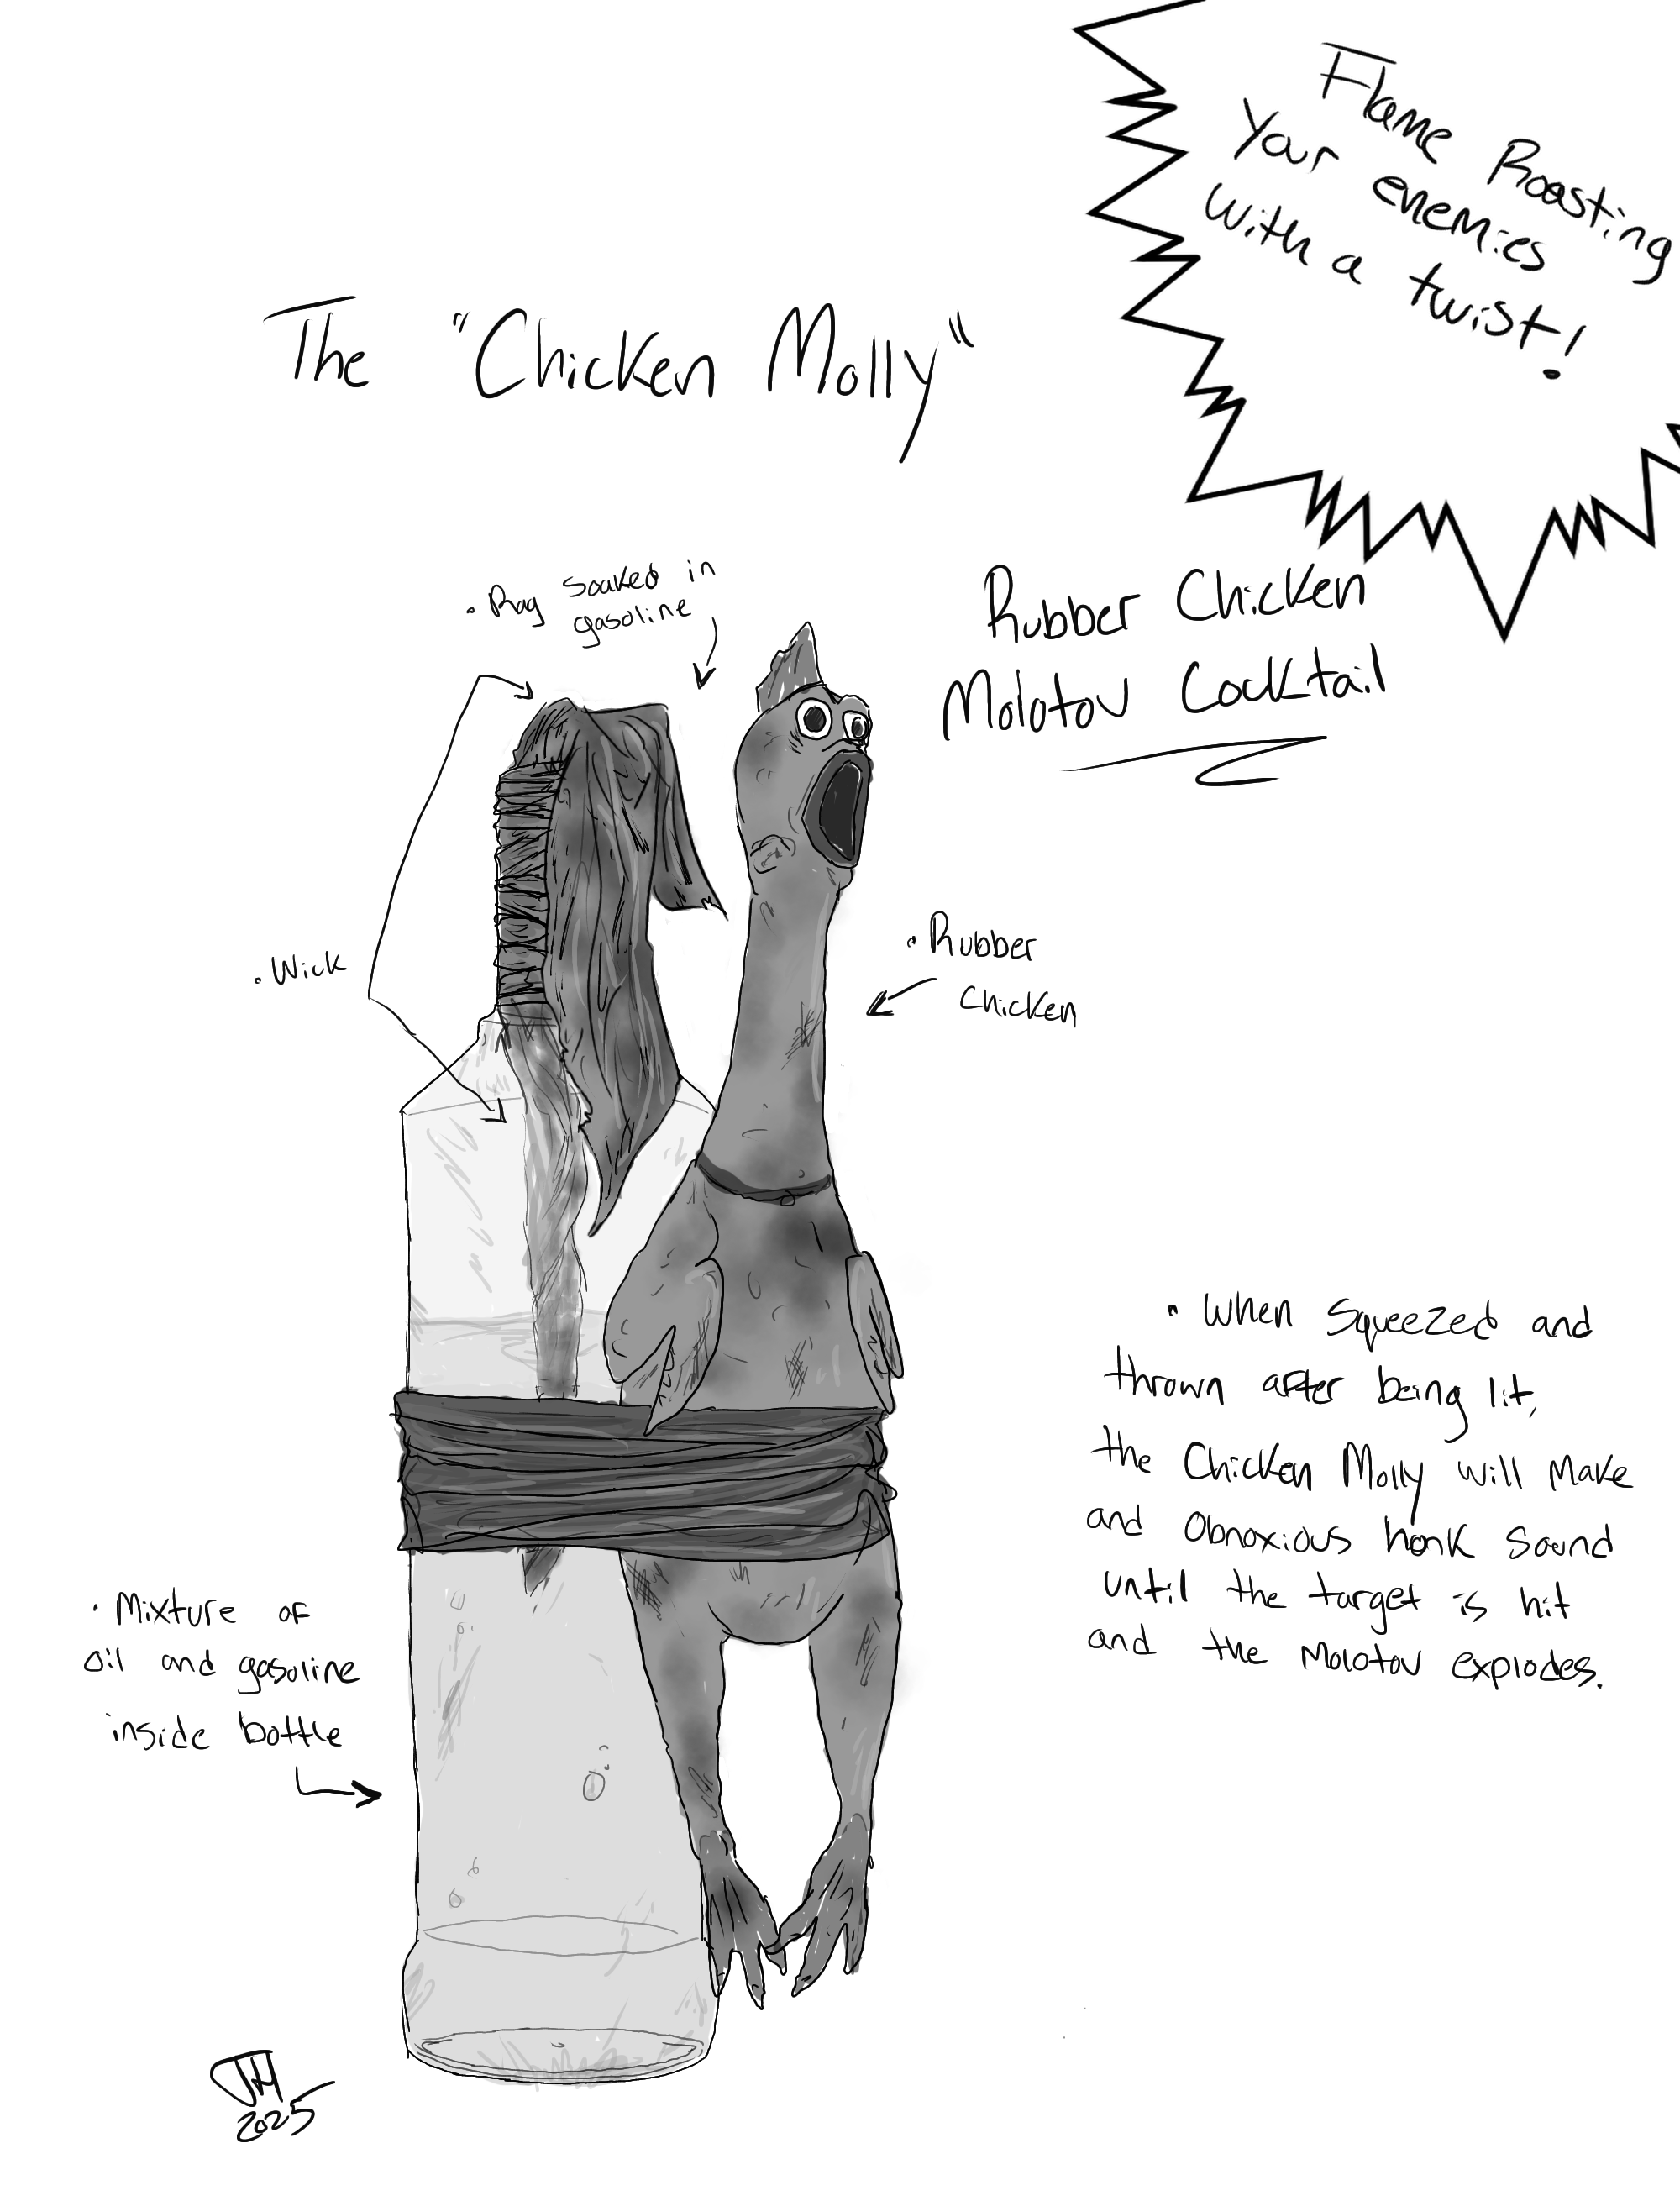 Flame Roasting
Your enemies
with a twist!
The "Chicken Molly"
• Rag soaked in
gasoline
Rubber Chicken
Molotov Cocktail
• Wick
• Rubber
Chicken
• When Squeezed and
thrown after being lit,
the Chicken Molly will make
and obnoxious honk sound
until the target is hit
and the Molotov explodes.
• Mixture of
oil and gasoline
inside bottle
JH
2025